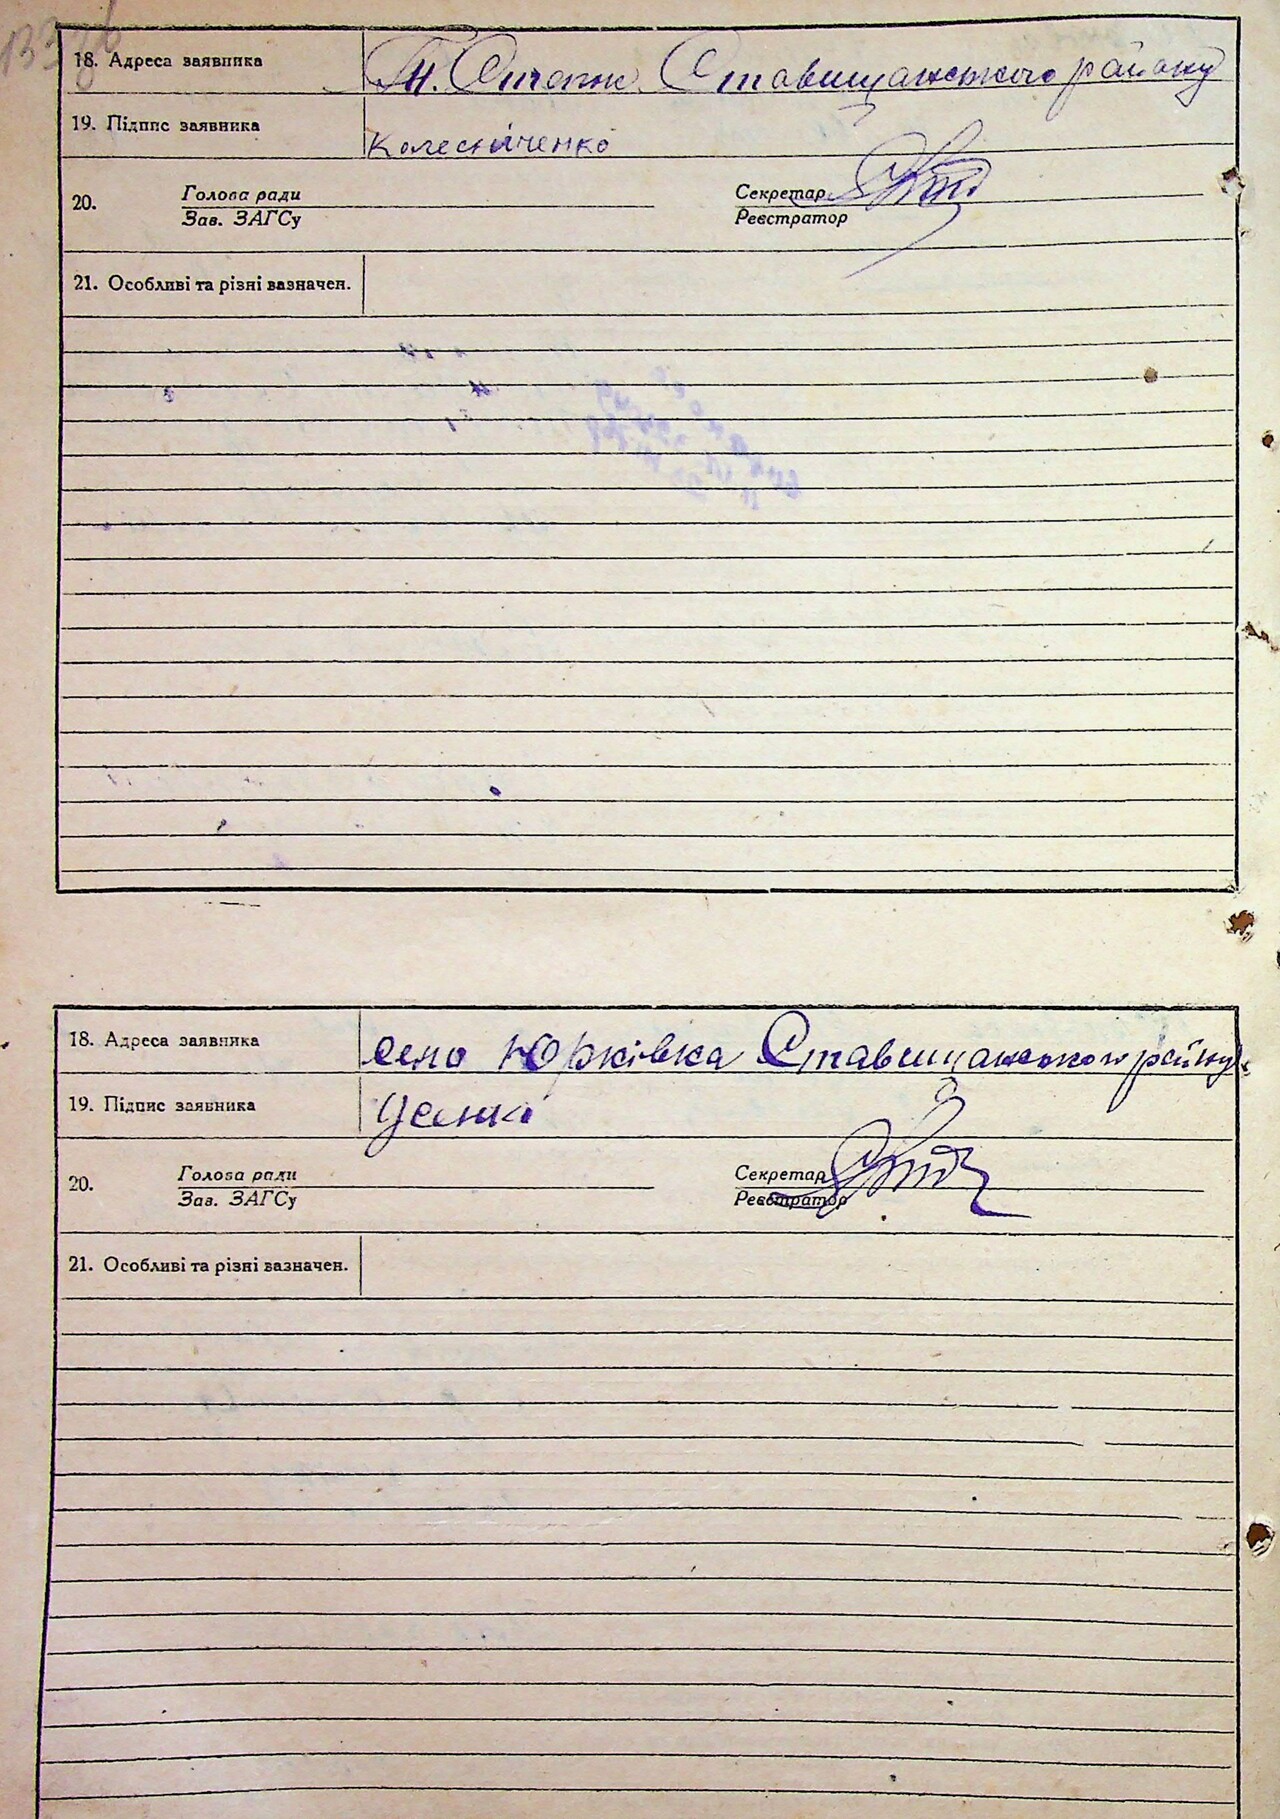 133 зв
18. Адреса заявника Ставищанського району
19. Підпис заявника Колесніченко
20. Голова ради Секретар
Зав. ЗАГСу Реєстратор
21. Особливі та різні вазначен.
18. Адреса заявника село Юрківка Ставищанського району
19. Підпис заявника Усенко
20. Голова ради Секретар
Зав. ЗАГСу Реєстратор
21. Особливі та різні вазначен.